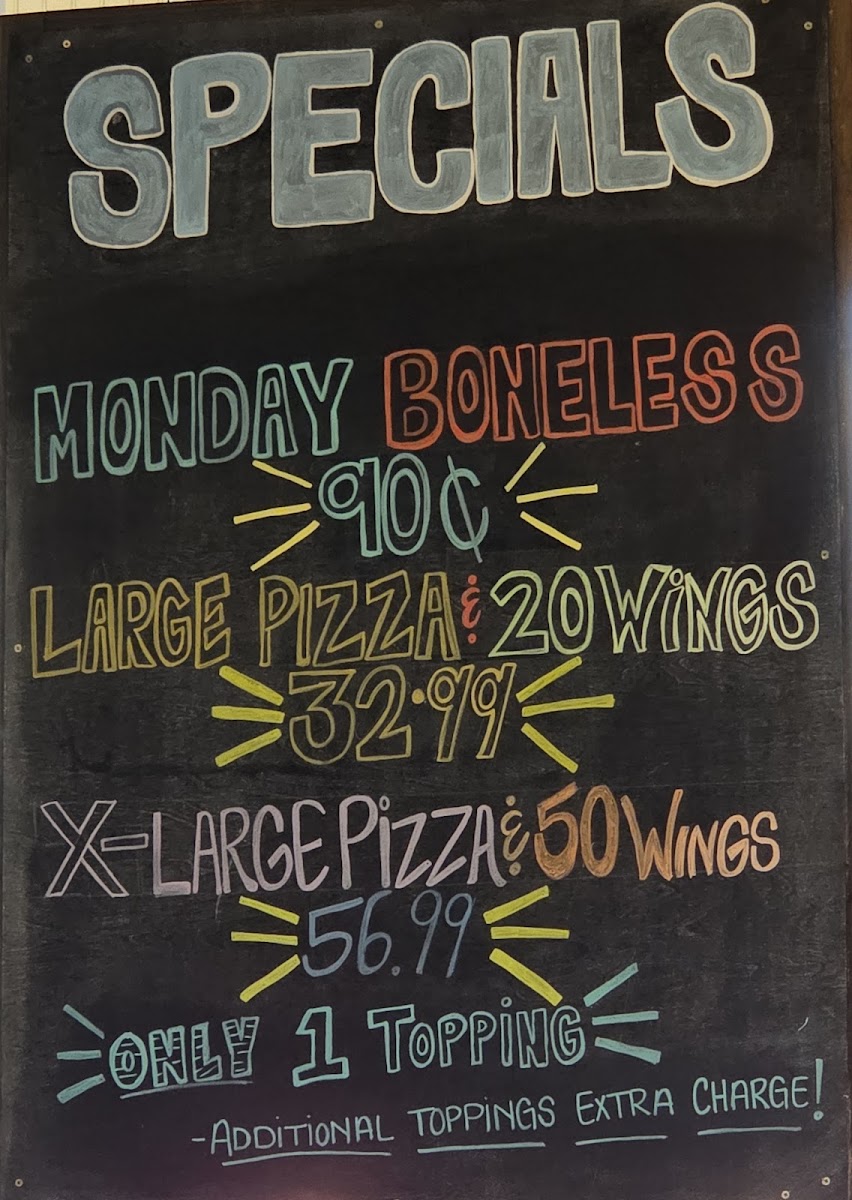 SPECIALS
MONDAY BONELESS
90¢
LARGE PIZZA & 20 WINGS
32.99
X-LARGE PIZZA & 50 WINGS
56.99
ONLY 1 TOPPING
-ADDITIONAL TOPPINGS EXTRA CHARGE!